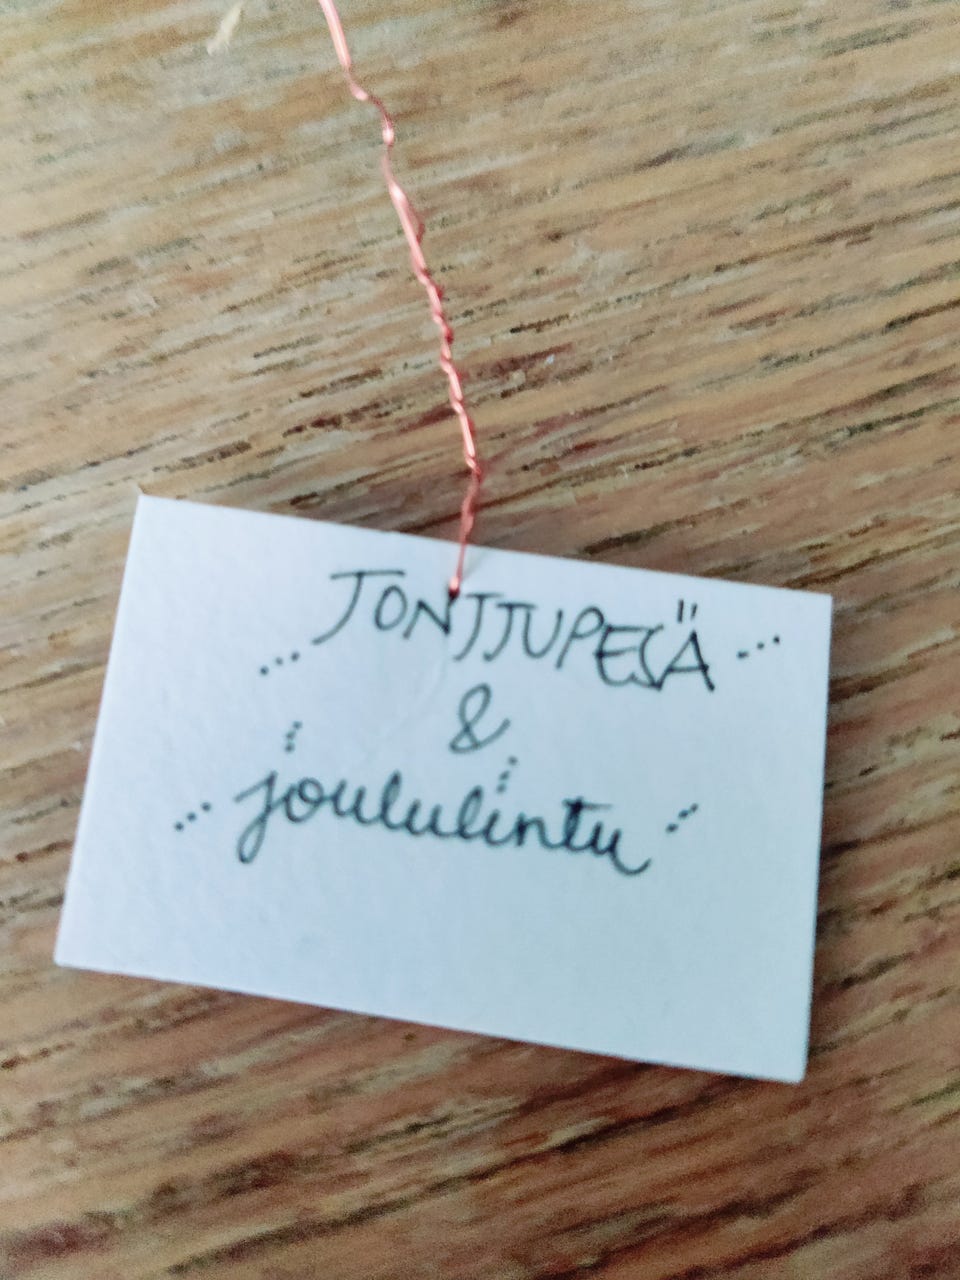 TONTTUPESÄ
&
joululintu